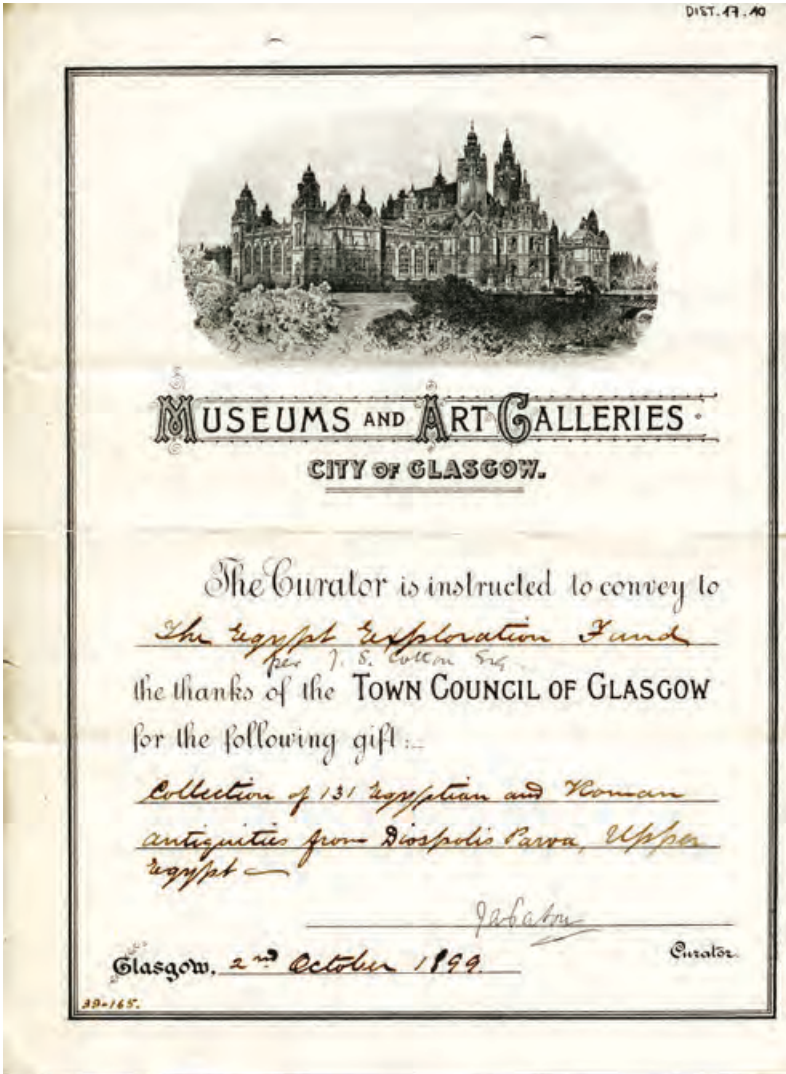 DIST.17.10
MUSEUMS AND ART GALLERIES
CITY OF GLASGOW.
The Curator is instructed to convey to
The Egypt Exploration Fund
per J. S. Cotton Esq.
the thanks of the TOWN COUNCIL OF GLASGOW
for the following gift:—
Collection of 131 Egyptian and Roman
antiquities from Diospolis Parva, Upper
Egypt —
J Paton
Curator.
Glasgow, 2nd October 1899.
99-165.